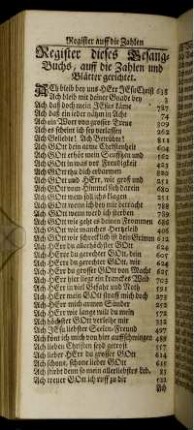 Register auff die Zahlen
Register dieses Gesang-
Buchs, auff die Zahlen und
Blätter gerichtet.
Ach bleib bey uns HErr JEsu Christ 638
Ach bleib mit deiner Gnade bey
Ach daß doch mein JEsus käme 787
Ach daß ein ieder nähm in Acht 74
Ach ein Wort von grosser Treue 709
Ach es scheint ich sey verlassen 262
Ach Geliebte! Ach
Ach GOtt dein arme Christenheit 604
Ach GOtt erhör mein Seufftzen und 162
Ach GOtt in was vor Freudigkeit 823
Ach GOtt thu dich erbarmen
Ach GOtt und HErr, wie groß und 231
Ach GOtt vom Himmel sieh darein 680
Ach GOtt wem soll ich klagen
Ach GOtt wenn ich bey mir betracht 168
Ach GOtt wenn werd ich sterben 789
Ach GOtt wie geht es deinen Frommen 686
Ach GOtt wie manches Hertzeleid 163
Ach GOtt wie schrecklich ist dein Grimm 612
Ach HErr du allerhöchster GOtt 624
Ach HErr du gerechter GOtt, dein 603
Ach HErr du gerechter GOtt, wir
Ach HErr du grosser GOtt von Macht 657
Ach HErr hier liegt ein kranckes Weib 703
Ach HErr in viel Gefahr und Noth
Ach HErr mein GOtt straff mich doch
Ach HErr mich armen Sünder 232
Ach HErr wie lange wilt du mein
Ach höchster GOtt verleihe mir
Ach JEsu liebster Seelen-Freund 497
Ach könt ich mich von hier aufschwingen
Ach lieben Christen seyd getrost 557
Ach lieber HErr du grosser GOtt 614
Ach schone, schone lieber GOtt 615
Ach stirbt denn so mein allerliebstes Lieb.
Ach treuer GOtt ich ruff zu dir 121
Ach